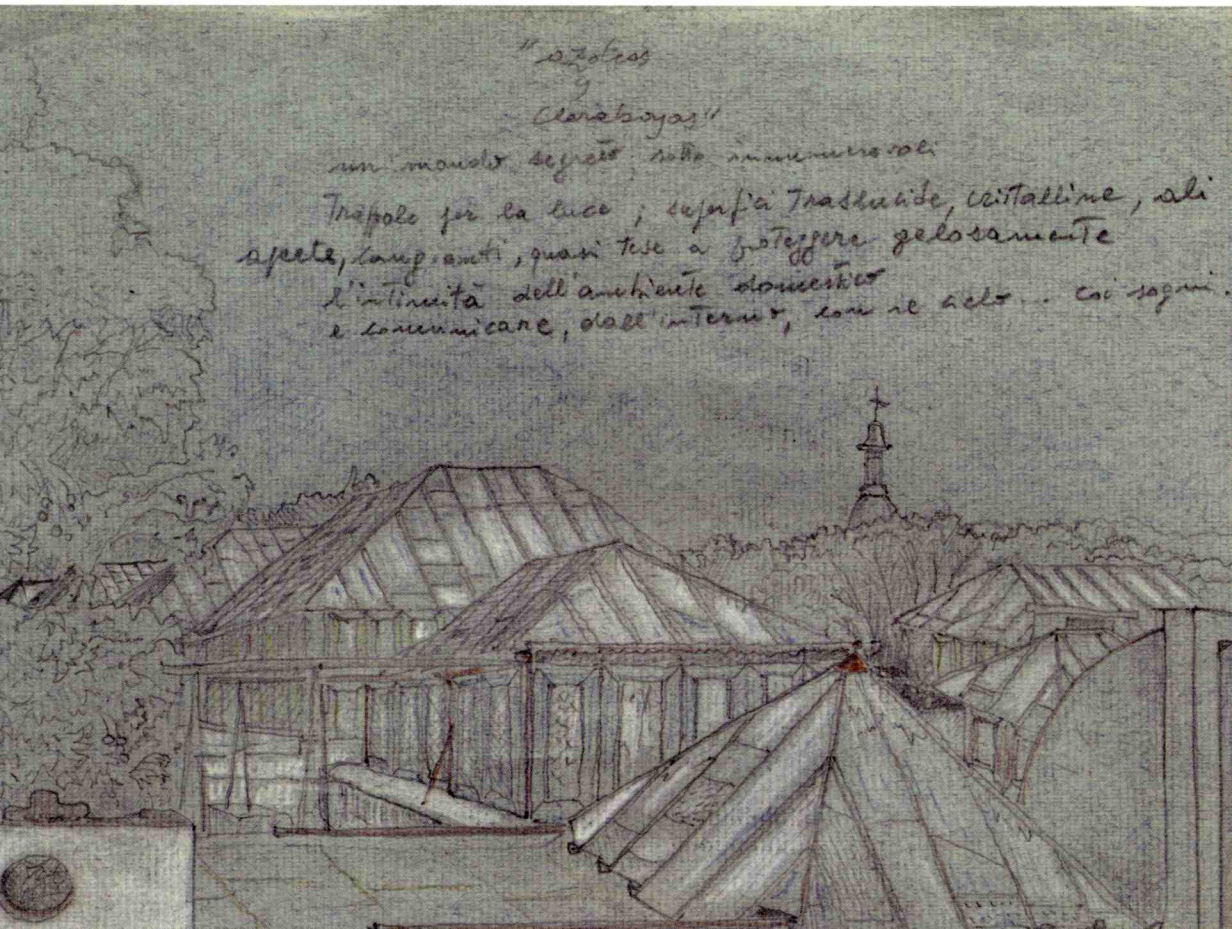 "azoteas
y
claraboyas"
un mondo segreto, sotto innumerevoli
Trappole per la luce, superfici Traslucide, cristalline, ali
aperte, cangianti, quasi tese a proteggere gelosamente
l'intimità dell'ambiente domestico
e comunicare, dall'interno, con il cielo... coi sogni.